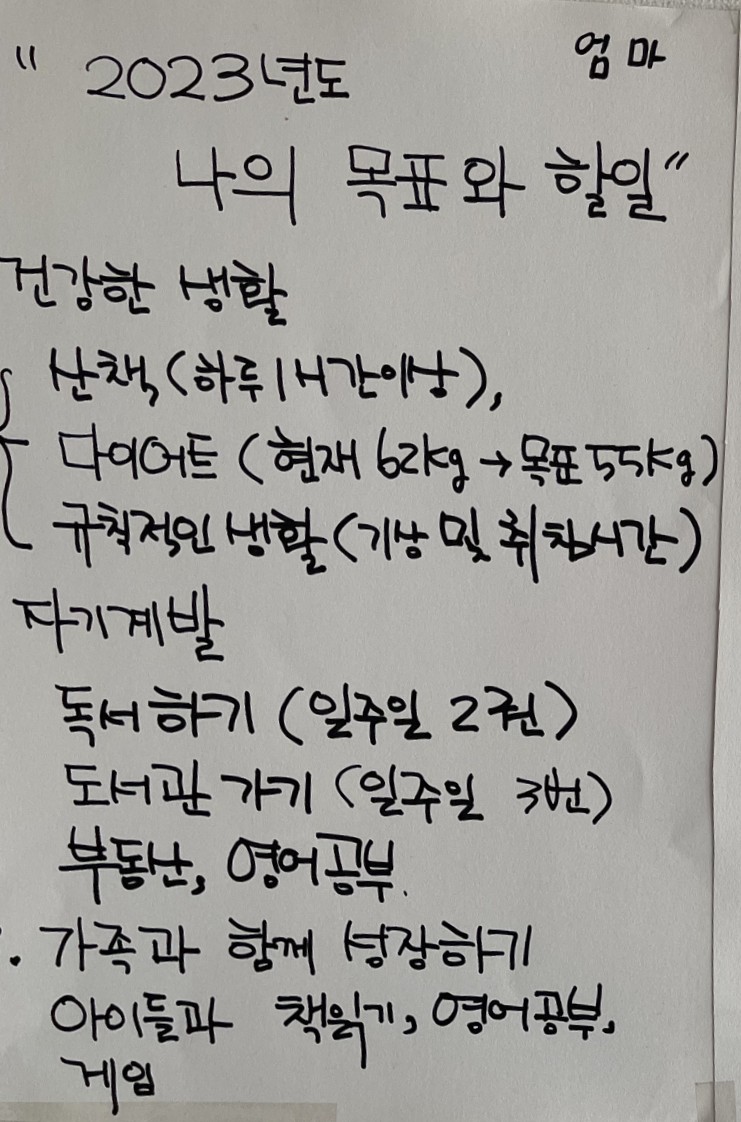 엄마
" 2023년도
나의 목표와 할일"
건강한 생활
산책(하루 1시간이상),
다이어트 (현재 62kg → 목표 55kg)
규칙적인 생활(기상 및 취침시간)
자기계발
독서하기 (일주일 2권)
도서관 가기 (일주일 3번)
부동산, 영어공부.
. 가족과 함께 성장하기
아이들과 책읽기, 영어공부,
게임